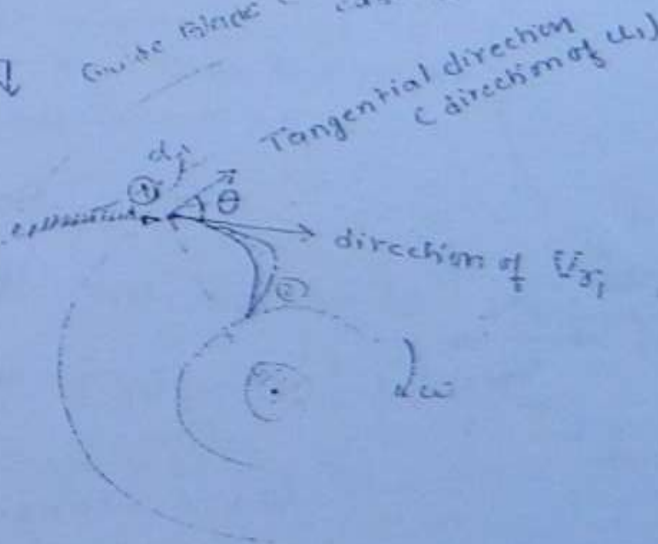 Guide Blade
Tangential direction
( direction of u₁)
α₁
①
θ
direction of V̄r₁
②
ω